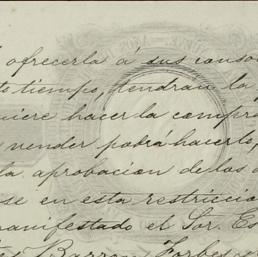 ofrecerla á sus conso
to tiempo, tendran la p
uiere hacer la compra
vender podrá hacerlo,
la aprobacion de las a
se en esta restriccio
manifestado el Sor. Es
Barron Forbes